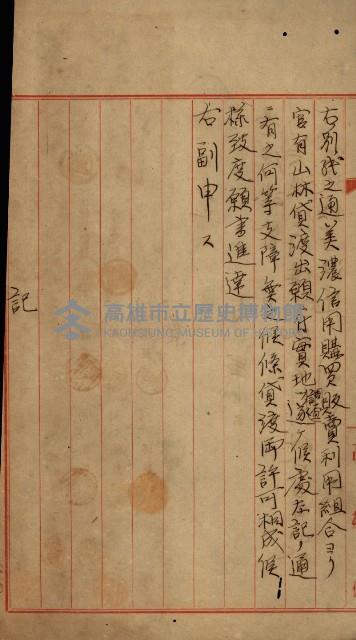 右別紙之通美濃信用購買販賣利用組合ヨリ
官有山林貸渡出願ニ付實地調査遂ケ候處左記ノ通
ニ有之何等支障無之候條貸渡御許可相成候
様致度願書進達
右副申ス
記
高雄市立歷史博物館
KAOHSIUNG MUSEUM OF HISTORY